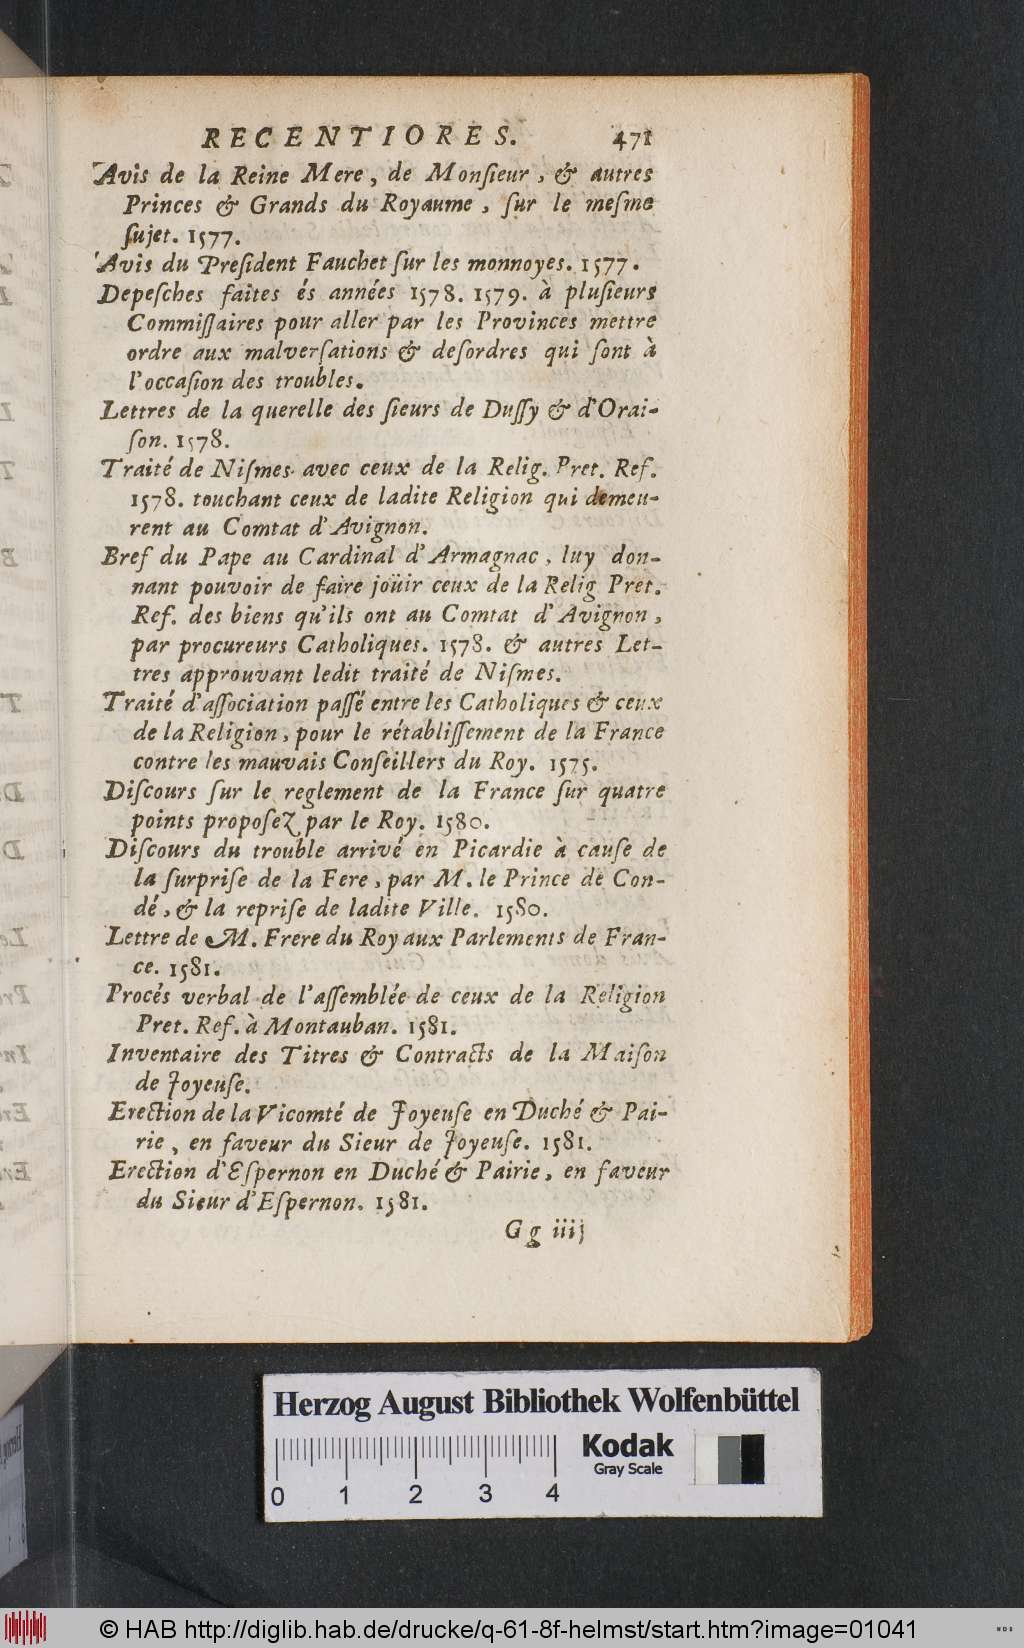 RECENTIORES. 471
Avis de la Reine Mere, de Monſieur, & autres
Princes & Grands du Royaume, ſur le meſme
ſujet. 1577.
Avis du Preſident Fauchet ſur les monnoyes. 1577.
Depeſches faites és années 1578. 1579. à pluſieurs
Commiſſaires pour aller par les Provinces mettre
ordre aux malverſations & deſordres qui ſont à
l'occaſion des troubles.
Lettres de la querelle des ſieurs de Duſſy & d'Orai-
ſon. 1578.
Traité de Niſmes avec ceux de la Relig. Pret. Ref.
1578. touchant ceux de ladite Religion qui demeu-
rent au Comtat d'Avignon.
Bref du Pape au Cardinal d'Armagnac, luy don-
nant pouvoir de faire joüir ceux de la Relig Pret.
Ref. des biens qu'ils ont au Comtat d'Avignon,
par procureurs Catholiques. 1578. & autres Let-
tres approuvant ledit traité de Niſmes.
Traité d'aſſociation paſſé entre les Catholiques & ceux
de la Religion, pour le rétabliſſement de la France
contre les mauvais Conſeillers du Roy. 1575.
Diſcours ſur le reglement de la France ſur quatre
points propoſez par le Roy. 1580.
Diſcours du trouble arrivé en Picardie à cauſe de
la ſurpriſe de la Fere, par M. le Prince de Con-
dé, & la repriſe de ladite Ville. 1580.
Lettre de M. Frere du Roy aux Parlements de Fran-
ce. 1581.
Procés verbal de l'aſſemblée de ceux de la Religion
Pret. Ref. à Montauban. 1581.
Inventaire des Titres & Contracts de la Maiſon
de Joyeuſe.
Erection de la Vicomté de Joyeuſe en Duché & Pai-
rie, en faveur du Sieur de Joyeuſe. 1581.
Erection d'Eſpernon en Duché & Pairie, en faveur
du Sieur d'Eſpernon. 1581.
Gg iiij
Herzog August Bibliothek Wolfenbüttel
Kodak
Gray Scale
0 1 2 3 4
© HAB http://diglib.hab.de/drucke/q-61-8f-helmst/start.htm?image=01041